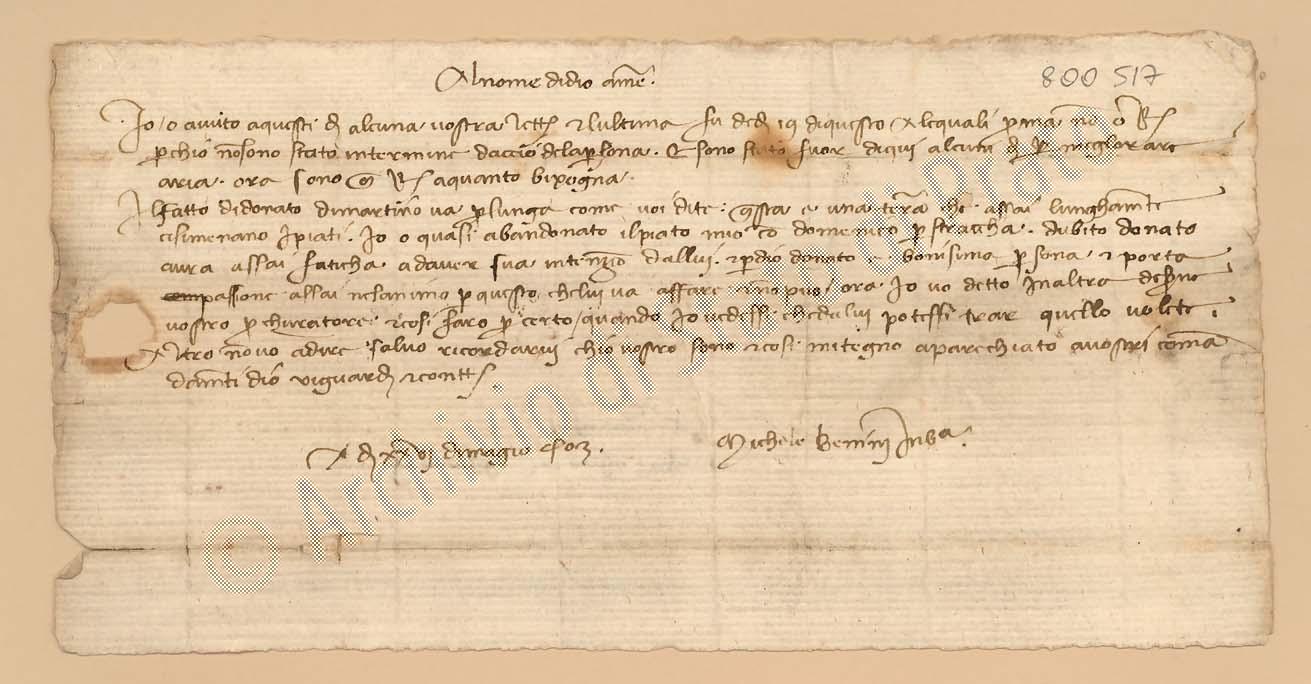 Al nome didio ame.
800 517
Io o auuto aquesti di alcuna vostra lettera e lultima fu dedi 19 diquesto alequali prima no o R
perchio nosono stato intermine dacio dela persona. E sono stato fuor diqui alcuti di per meglorare
aria. ora sono R aquanto bixogna.
Il fatto didonato dimartino va perlunga come voi dite. questa e una terra che assai lunghamente
cisimenano ipiati. Io o quasi abandonato ilpiato mio co domenico per straccha. dubito donato
aura assai faticha adaver sua intenzio dallui. e perdio donato e bonisima persona e porta
passione assai nelanimo per questo chelui va affare. ora Io vo detto inaltra desere
vostro perchuratore. e cosi faro per certo quando Io vedessi chedalui potessi trar quello volete.
Altro novo adire salvo ricordarvi chio vostro sono e cosi mitegno aparechiato avostri coma
damenti dio viguardi
A di XXVI dimagio
Michele Benini
© Archivio di Stato di Prato